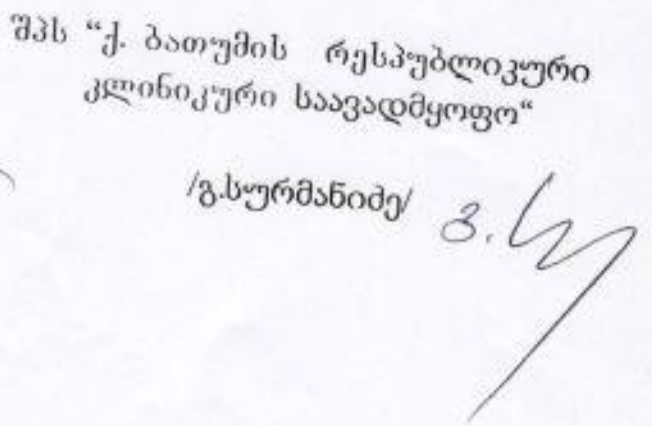 შპს “ქ. ბათუმის რესპუბლიკური
კლინიკური საავადმყოფო“
/გ.სურმანიძე/